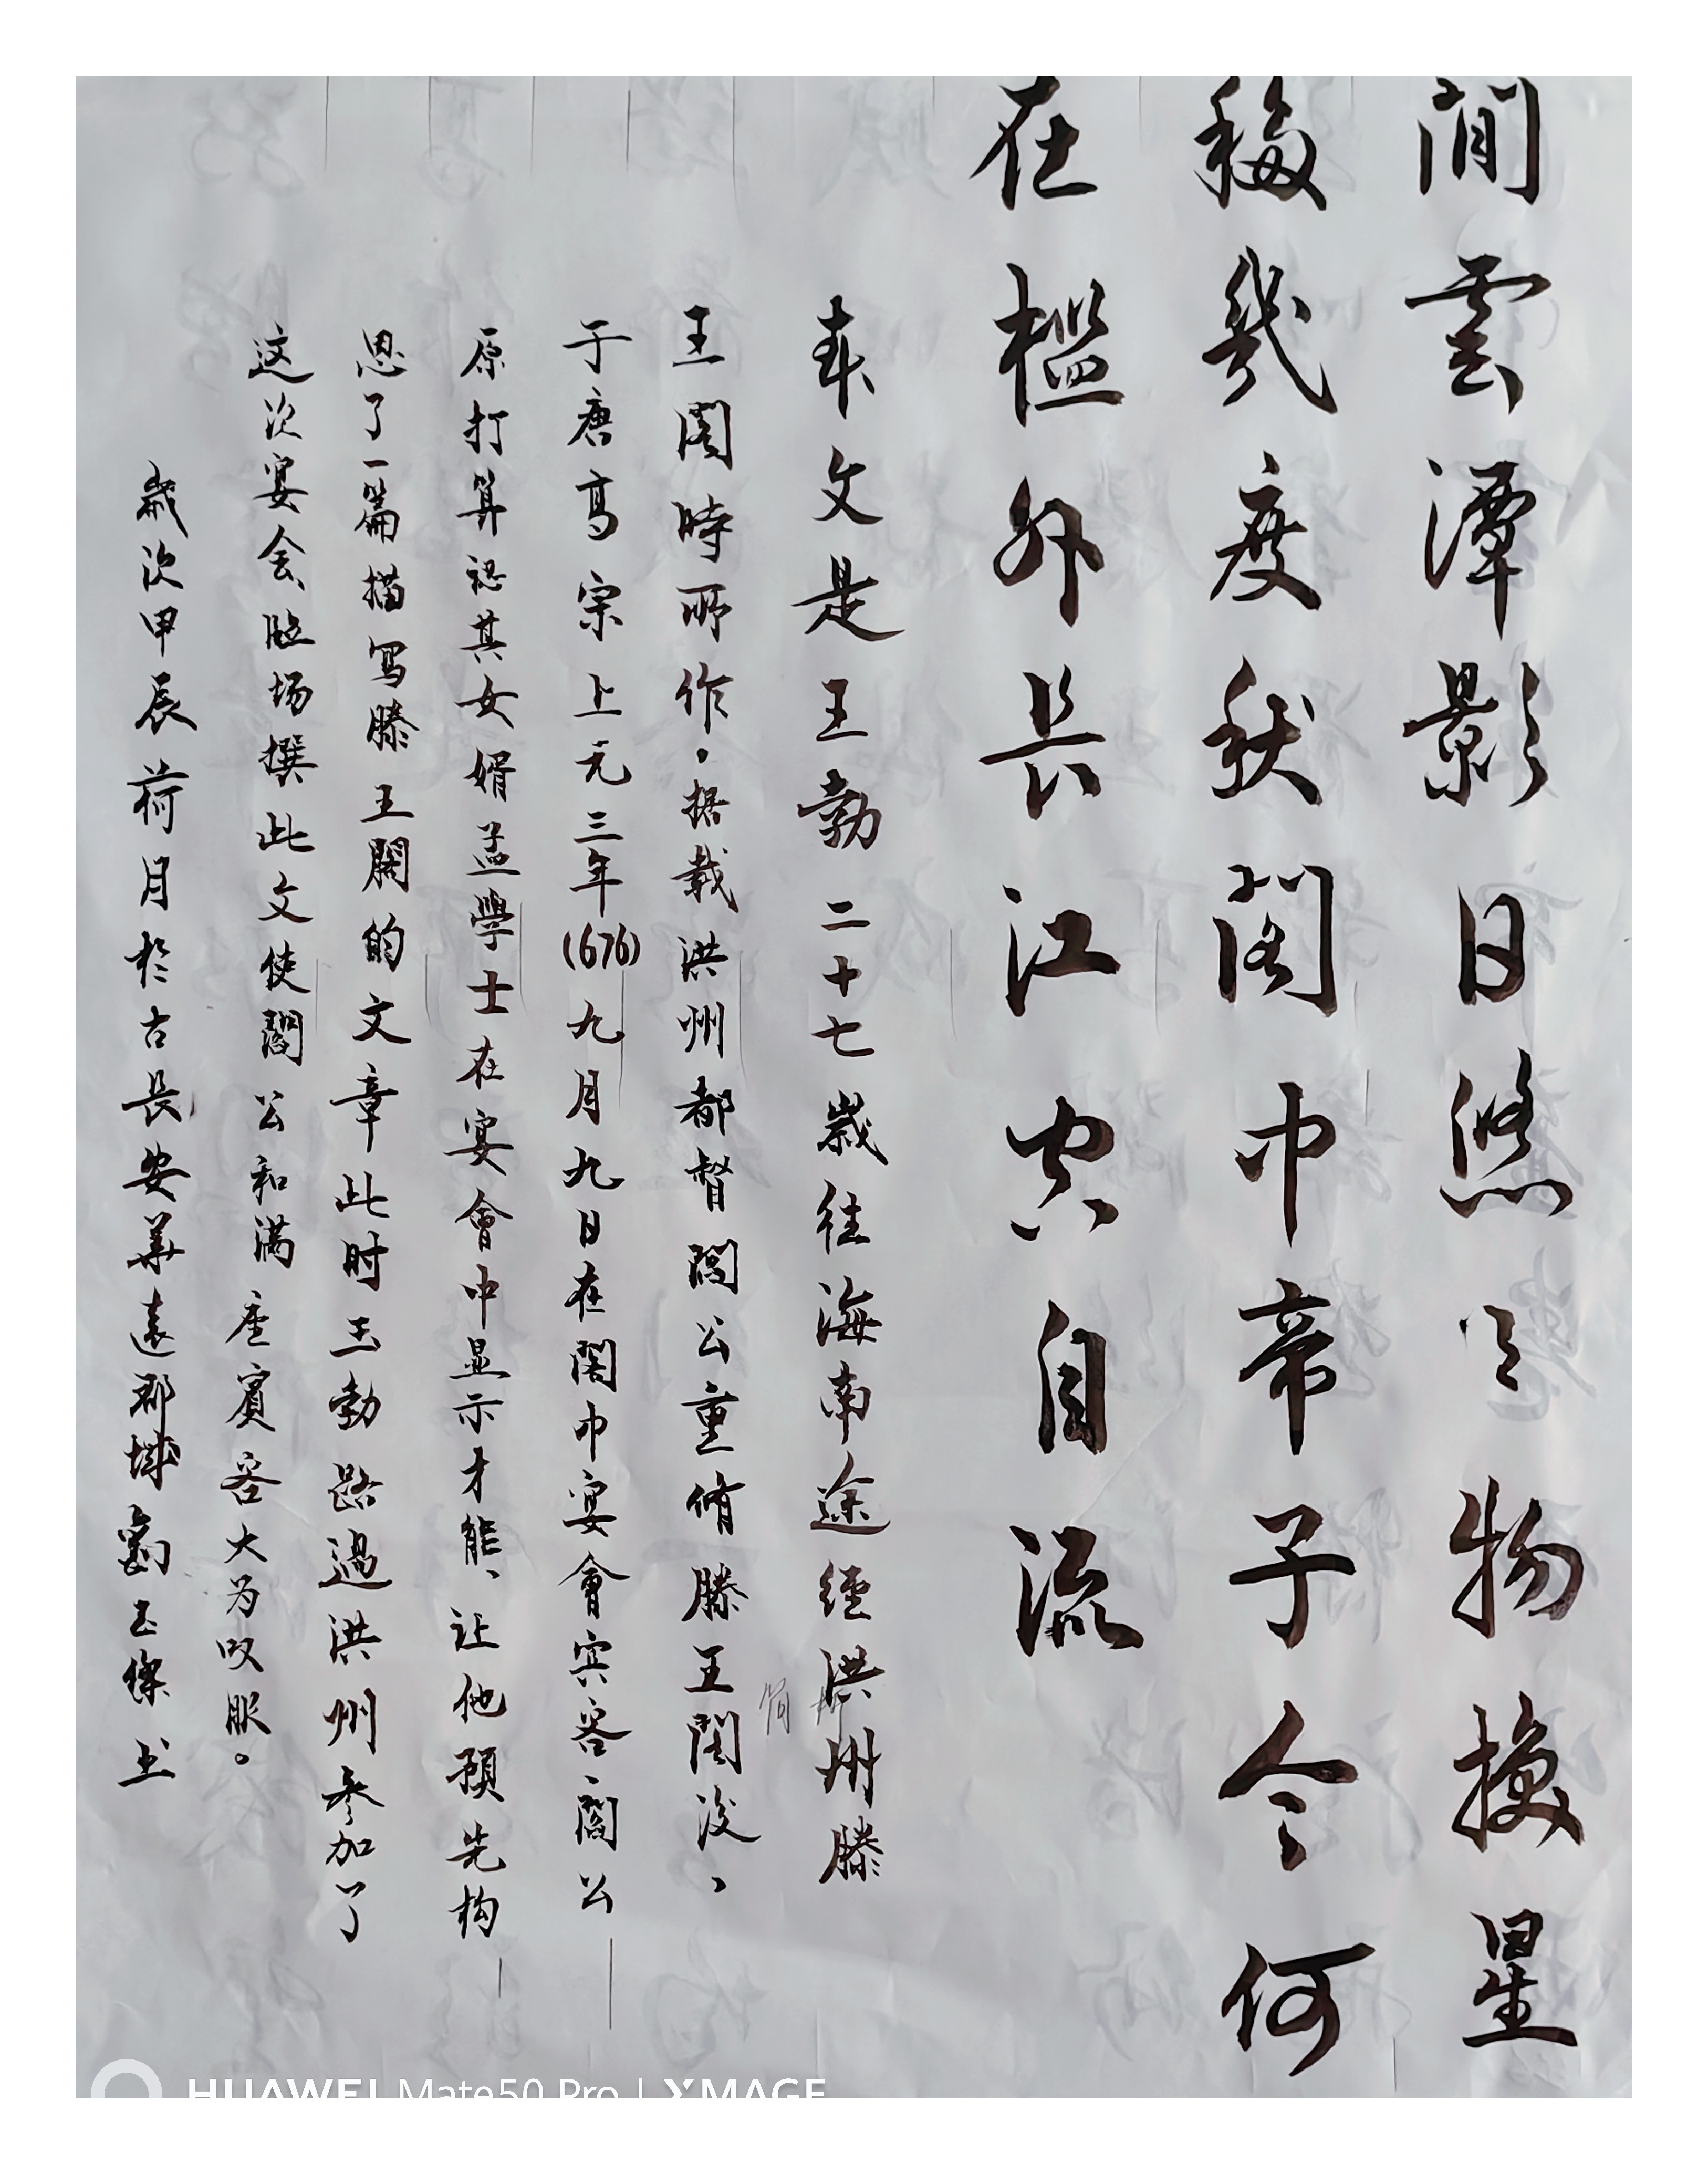 閒雲潭影日悠〻物換星
移幾度秋閣中帝子今何
在檻外長江空自流
本文是王勃二十七歲往海南途经洪州滕
王阁時所作，据載洪州都督閻公重脩滕王閣後、
于唐高宗上元三年(676)九月九日在閣中宴會宾客、閻公
原打算认其女婿孟學士在宴會中显示才能、让他預先构
思了一篇描写滕王閣的文章此时王勃路過洪州参加了
这次宴会、临场撰此文使閻公和满座賓客大为叹服。
歲次甲辰荷月於古長安華遠郡城劉玉傑书
HUAWEI Mate50 Pro | XMAGE